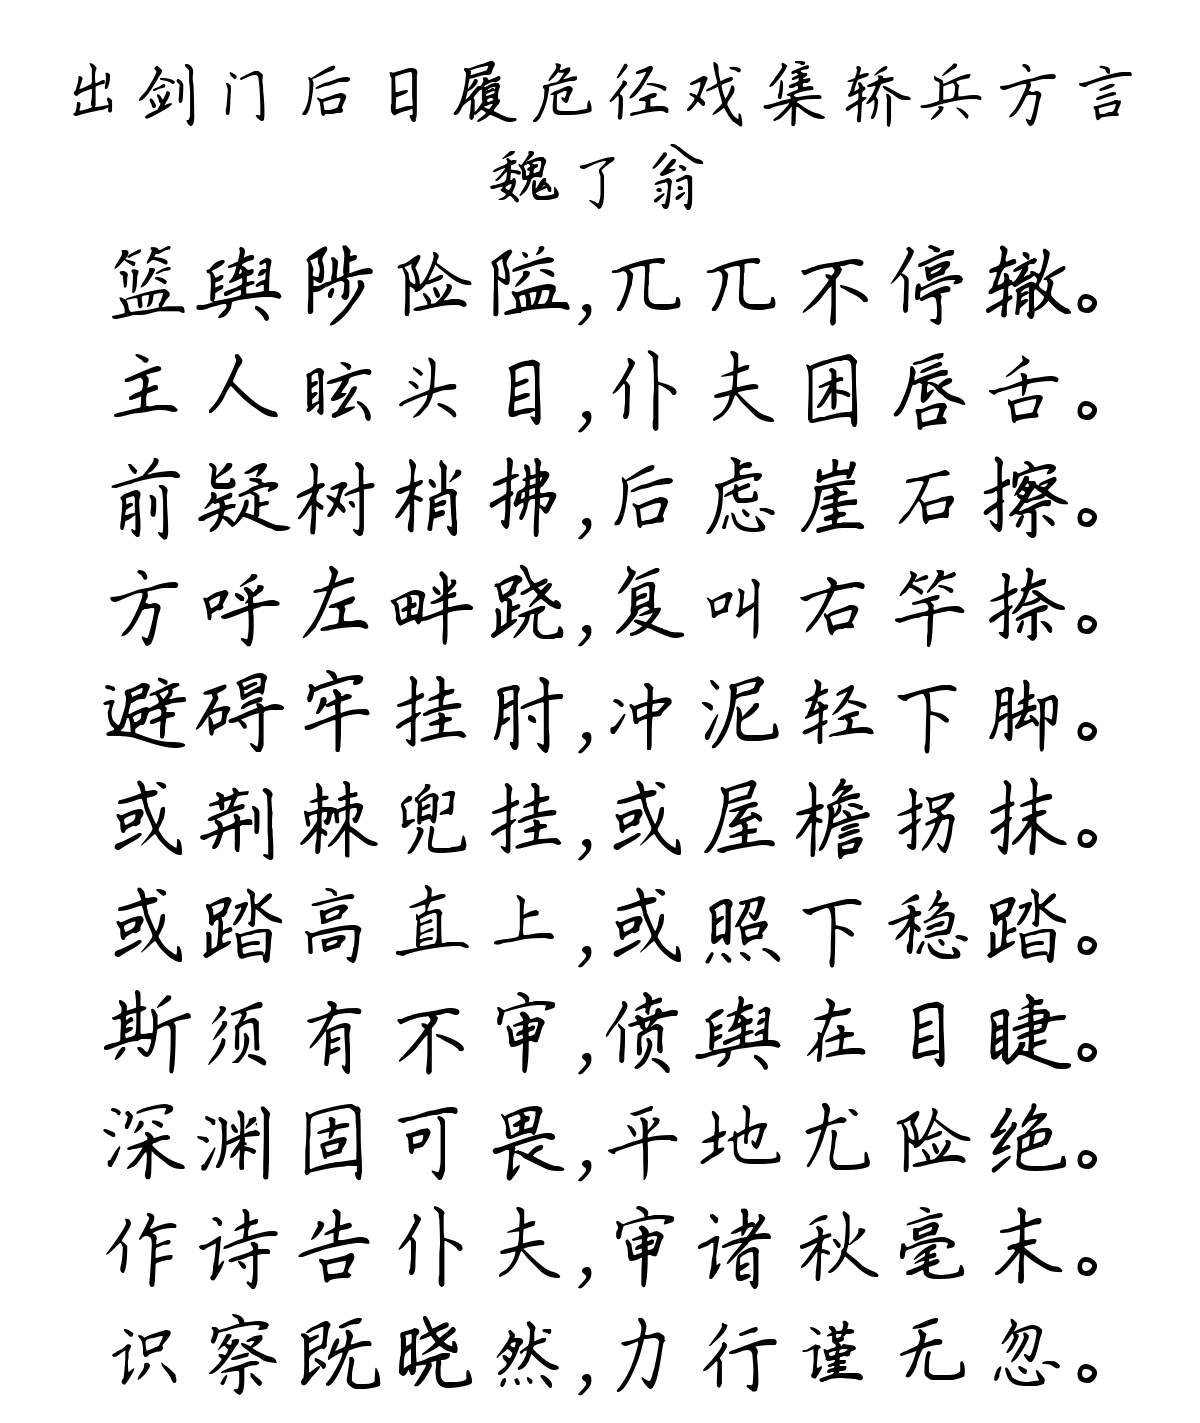 出剑门后日履危径戏集轿兵方言
魏了翁
篮舆陟险隘,兀兀不停辙。
主人眩头目,仆夫困唇舌。
前疑树梢拂,后虑崖石擦。
方呼左畔跷,复叫右竿捺。
避碍牢挂肘,冲泥轻下脚。
或荆棘兜挂,或屋檐拐抹。
或踏高直上,或照下稳踏。
斯须有不审,偾舆在目睫。
深渊固可畏,平地尤险绝。
作诗告仆夫,审诸秋毫末。
识察既晓然,力行谨无忽。